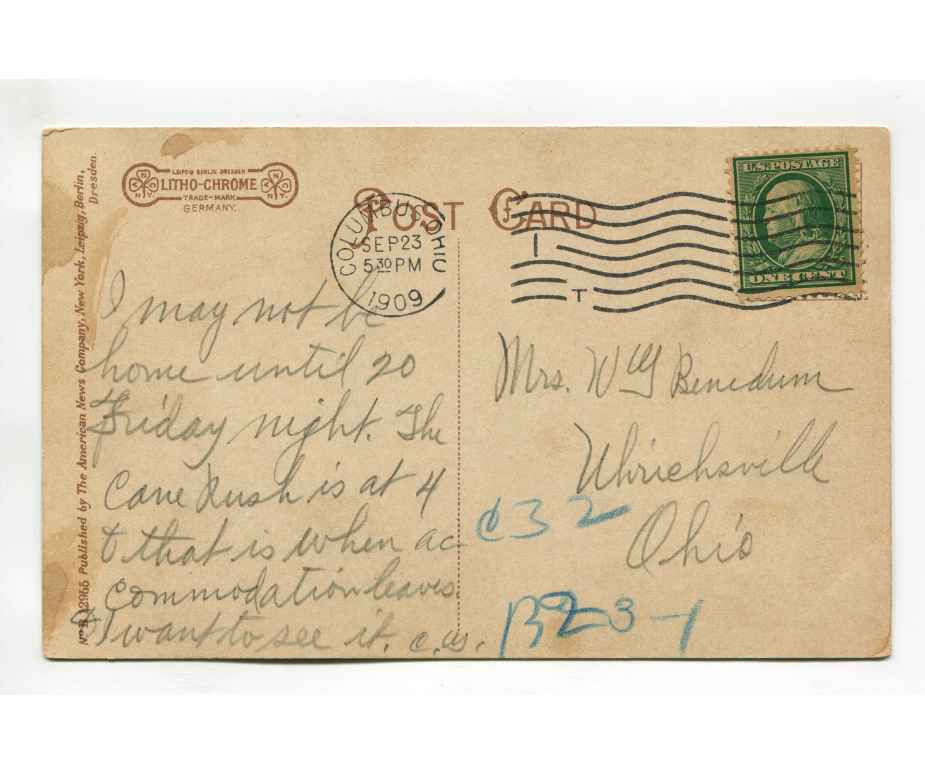 LEIPZIG BERLIN DRESDEN
LITHO-CHROME
TRADE-MARK
GERMANY.
POST CARD
COLUMBUS, OHIO
SEP 23
5 30 PM
1909
I
T
U.S. POSTAGE
ONE CENT
Dresden.
12955 Published by The American News Company, New York, Leipzig, Berlin,
I may not be
home until 20
Friday night. The
Cane Rush is at 4
& that is when ac-
commodation leaves
& I want to see it. C.W.
Mrs. Benedum
Uhrichsville
Ohio
C32
B23-1